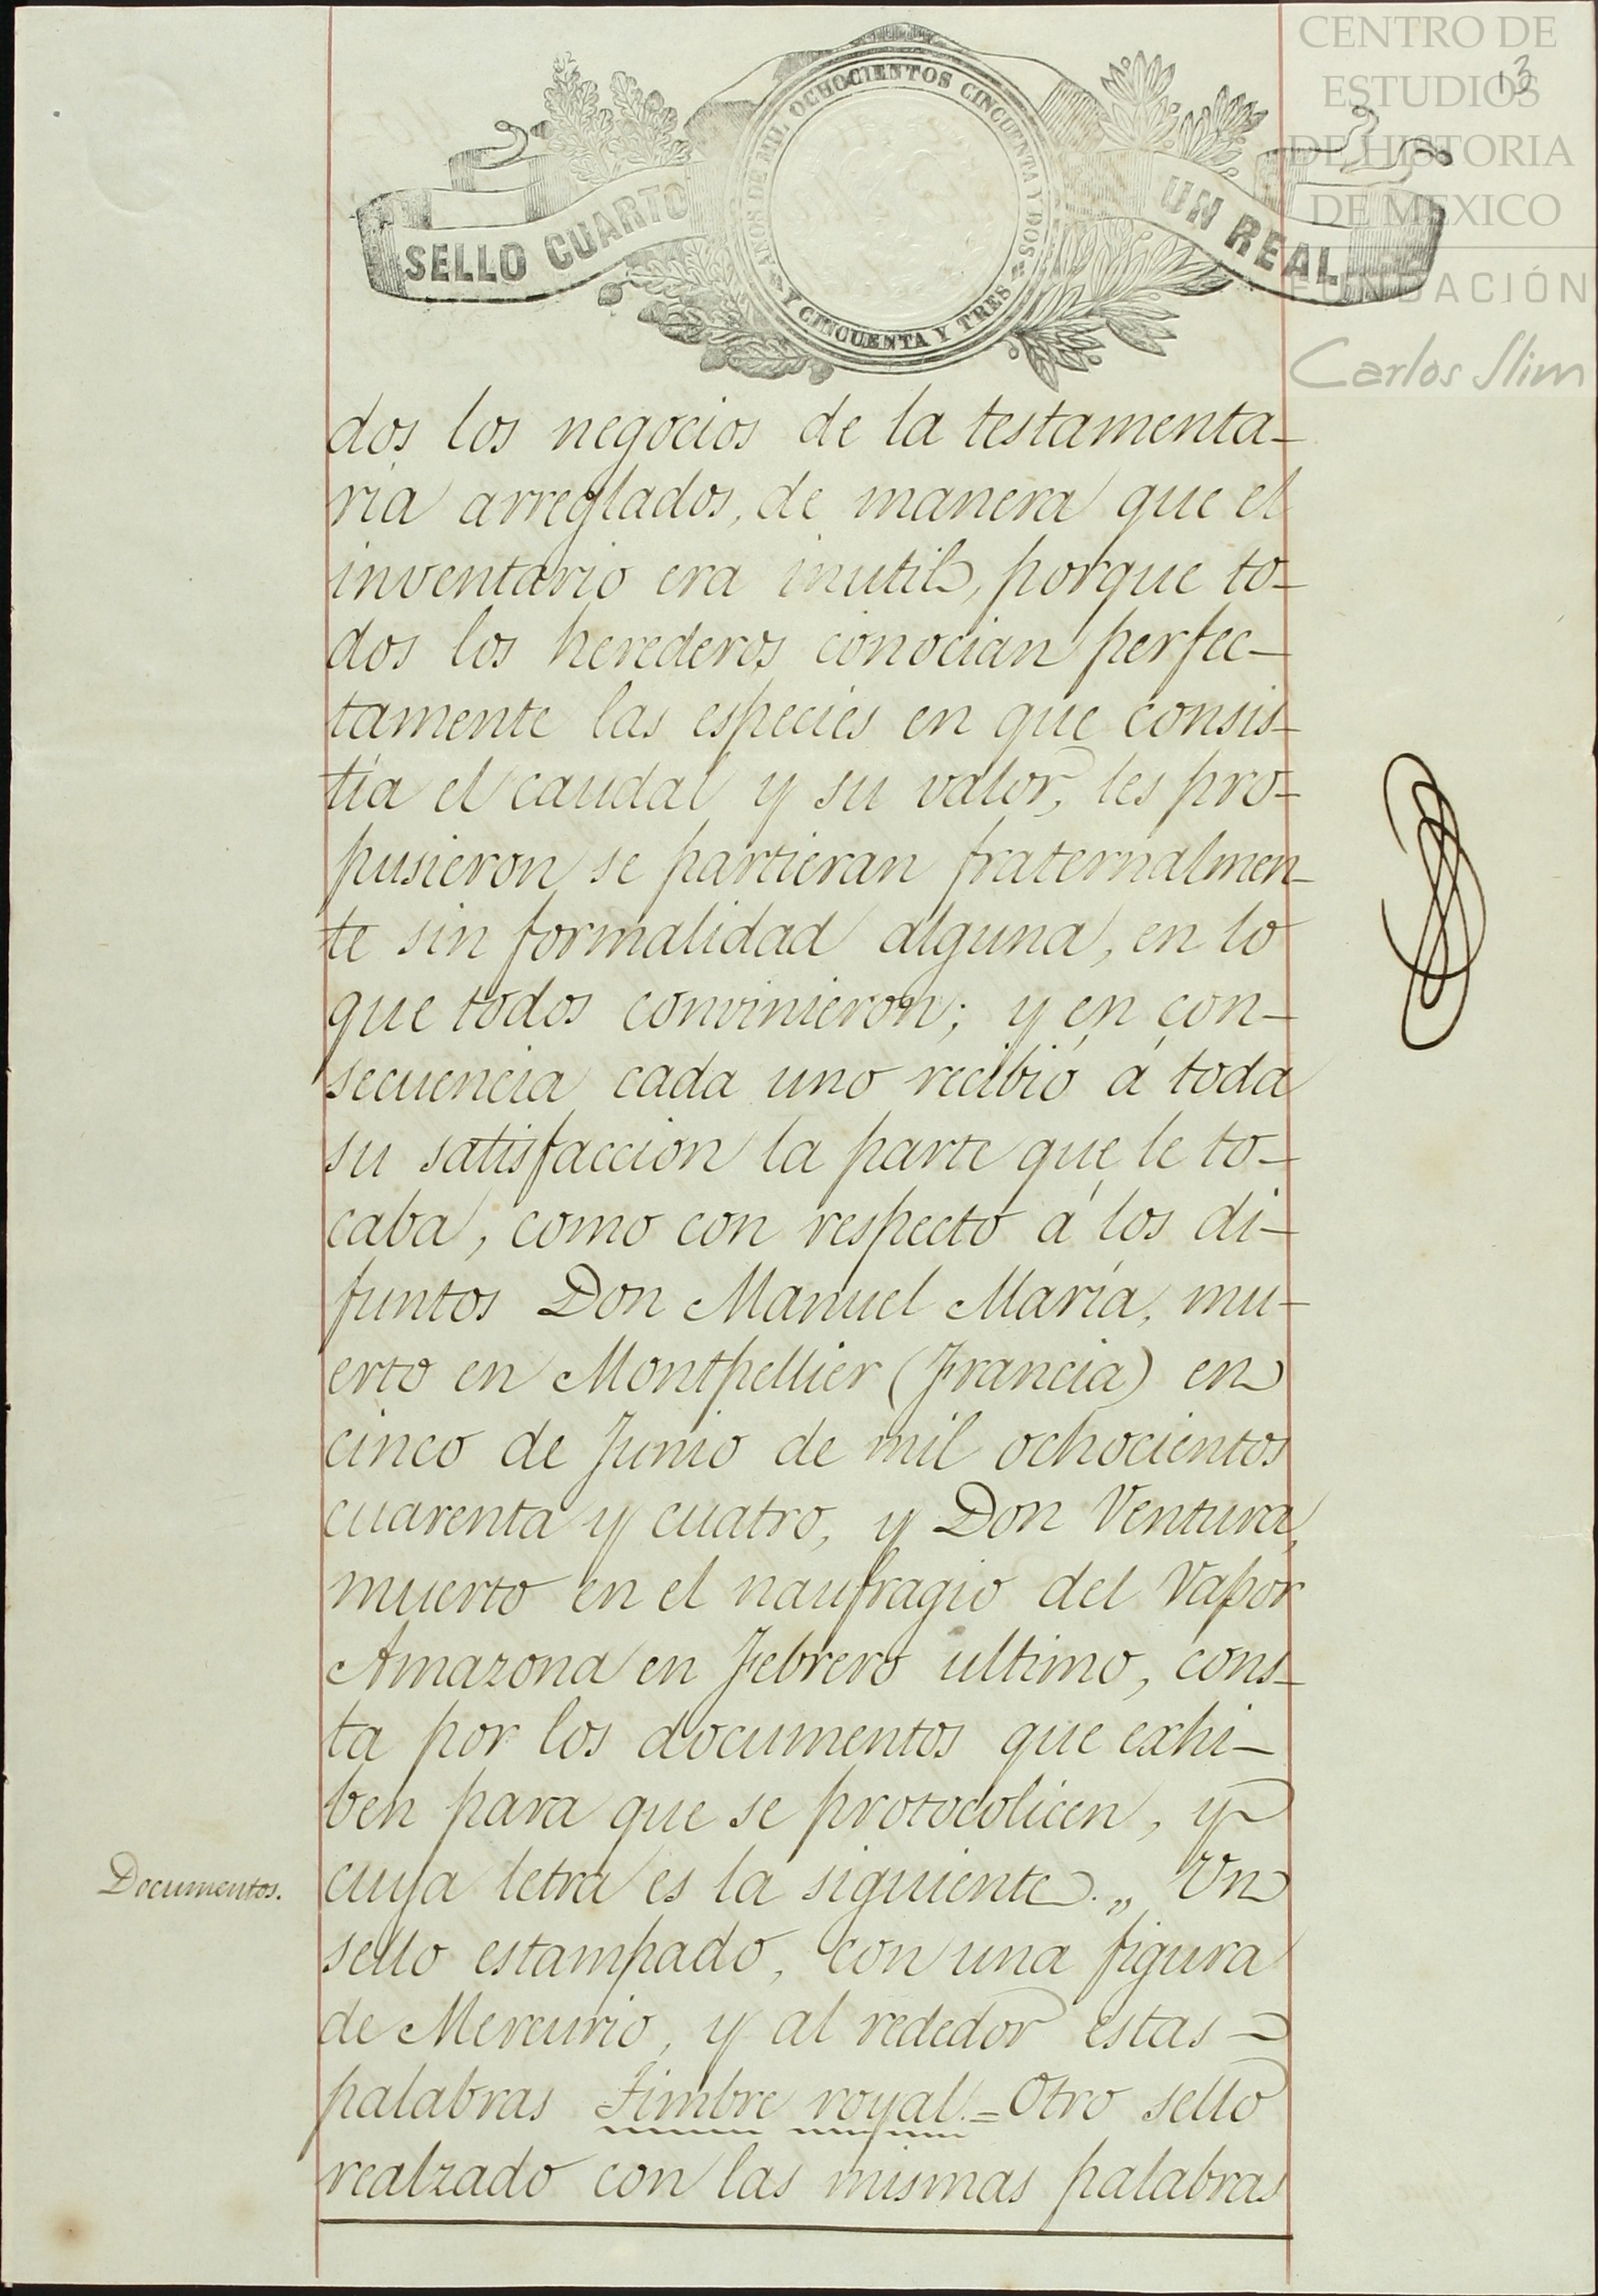 CENTRO DE
ESTUDIOS
DE HISTORIA
DE MEXICO
FUNDACIÓN
Carlos Slim
13
SELLO CUARTO
AÑOS DE MIL OCHOCIENTOS CINCUENTA Y DOS
Y CINCUENTA Y TRES
UN REAL
dos los negocios de la testamenta-
ria arreglados, de manera que el
inventario era inutil, porque to-
dos los herederos conocian perfec-
tamente las especies en que consis-
tía el caudal y su valor, les pro-
pusieron se partieran fraternalmen-
te sin formalidad alguna, en lo
que todos convinieron; y en con-
secuencia cada uno recibió á toda
su satisfaccion la parte que le to-
caba, como con respecto á los di-
funtos Don Manuel María, mu-
erto en Montpellier (Francia) en
cinco de Junio de mil ochocientos
cuarenta y cuatro, y Don Ventura,
muerto en el naufragio del Vapor
Amazona en Febrero ultimo, cons-
ta por los documentos que exhi-
ben para que se protocolicen, y
Documentos.
cuya letra es la siguiente. „ Un
sello estampado, con una figura
de Mercurio, y al rededor estas
palabras Timbre royal.=Otro sello
realzado con las mismas palabras